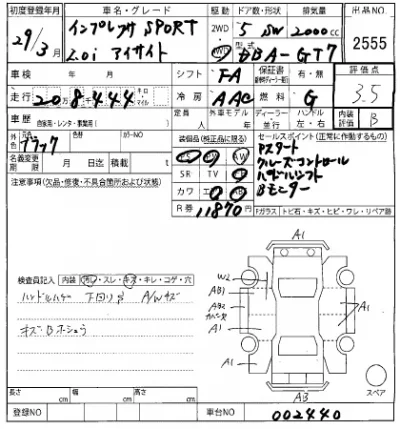 初度登録年月 車名・グレード 駆動 ドア数・形状 排気量 出品NO
29年 インプレッサ SPORT 2WD 5 SW 2000cc 2555
3月 2.0i アイサイト 4WD 型式 DBA-GT7
車検 年 月 シフト FA 保証書 有・無 評価点
走行 208,444 キロ マイル 冷房 AAC 燃料 G 3.5
車歴 自家用・レンタ・事業用 定員 人 外車モデル 年 ディーラー 並行 ハンドル 左・右 内装評価 B
外色 元色 ブラック カラーNO
装備品(純正品に限る) セールスポイント(正常に作動するもの)
PS PW AW Pスタート
名義変更期限 月 日迄 積載 t SR TV クルーズコントロール
注意事項(欠品・修復・不具合箇所および状態) カワ パドルシフト
R券 11870円 Bモニター
Fガラス トビ石・キズ・ヒビ・ワレ・リペア跡
検査員記入 内装 汚・スレ・キズ・キレ・コゲ・穴
ハンドルハゲ 下回りサ A/Wキズ
キズBホシュウ
A1
W2
AB1
AB2
A1
A1
A1
A1
AB
スペア
長さ cm 幅 cm 高さ cm
登録NO 車台NO 002440